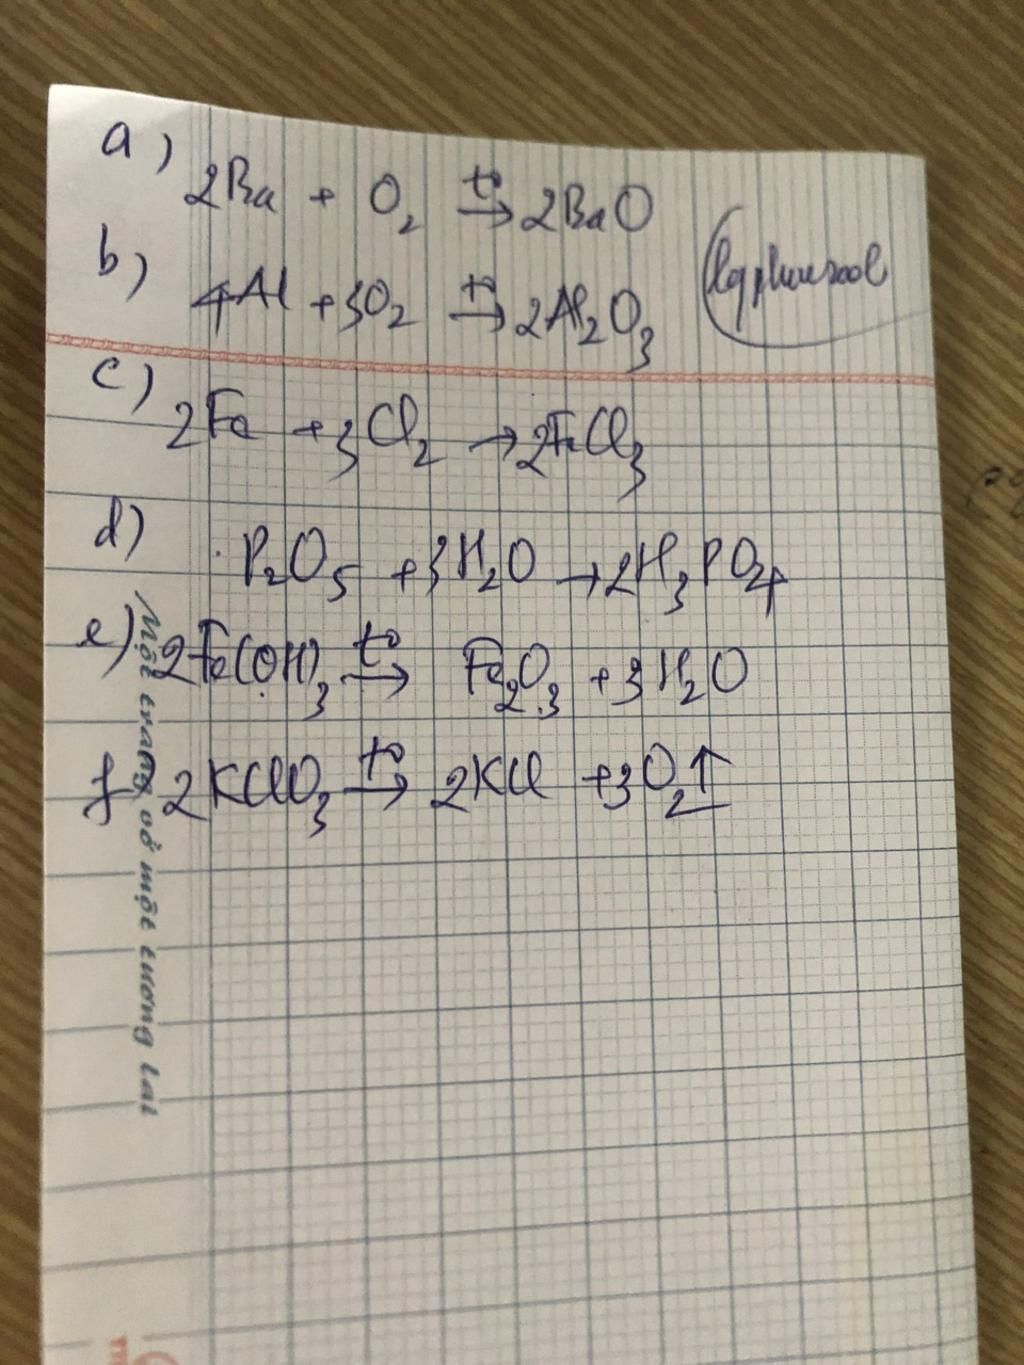 a)
2Ba + O₂ →(t⁰) 2BaO
b)
4Al + 3O₂ →(t⁰) 2Al₂O₃
c)
2Fe + 3Cl₂ → 2FeCl₃
d)
P₂O₅ + 3H₂O → 2H₃PO₄
e) 2Fe(OH)₃ →(t⁰) Fe₂O₃ + 3H₂O
f) 2KClO₃ →(t⁰) 2KCl + 3O₂↑
Một trang vở một tương lai